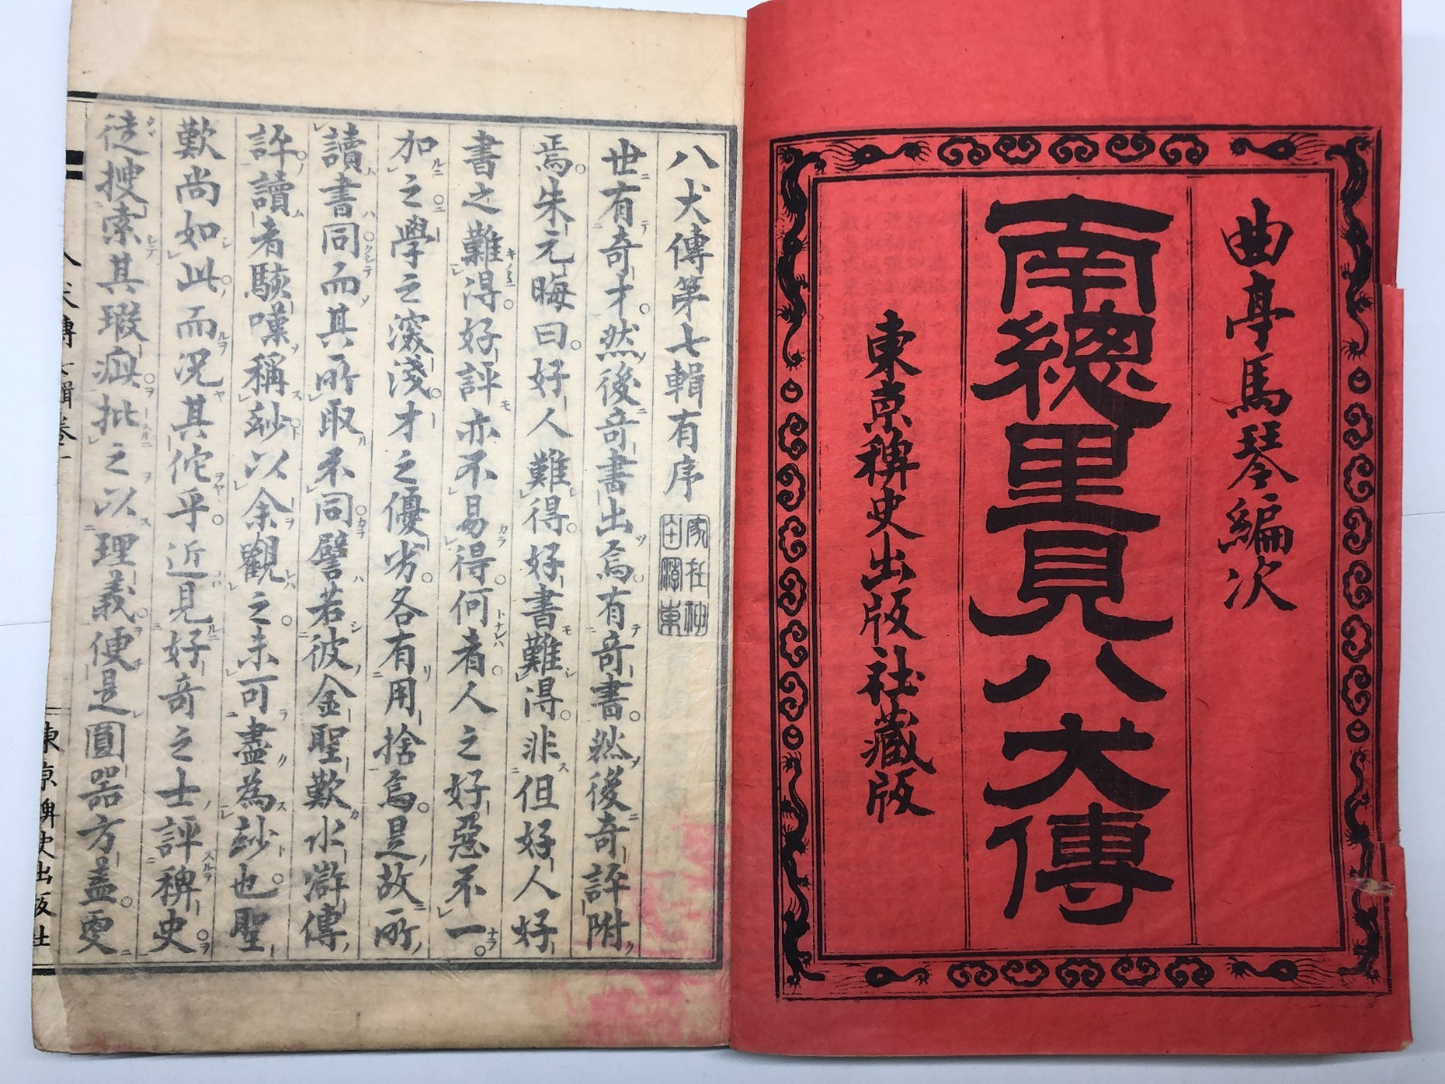 曲亭馬琴編次
南總里見八犬傳
東京稗史出版社藏版
八犬傳第七輯有序
世有奇才然後奇書出焉有奇書然後奇評附
焉朱元晦曰好人難得好書難得非但好人好
書之難得好評亦不易得何者人之好惡不一
加之學之深淺才之優劣各有用捨焉是故所
讀書同而其所取不同譬若彼金聖歎水滸傳
評讀者駭嘆稱玅以余觀之未可盡為玅也聖
歎尚如此而況其佗乎近見好奇之士評稗史
徒搜索其瑕疵批之以理義便是圓器方蓋雯
八犬傳七輯卷一
東京稗史出版社